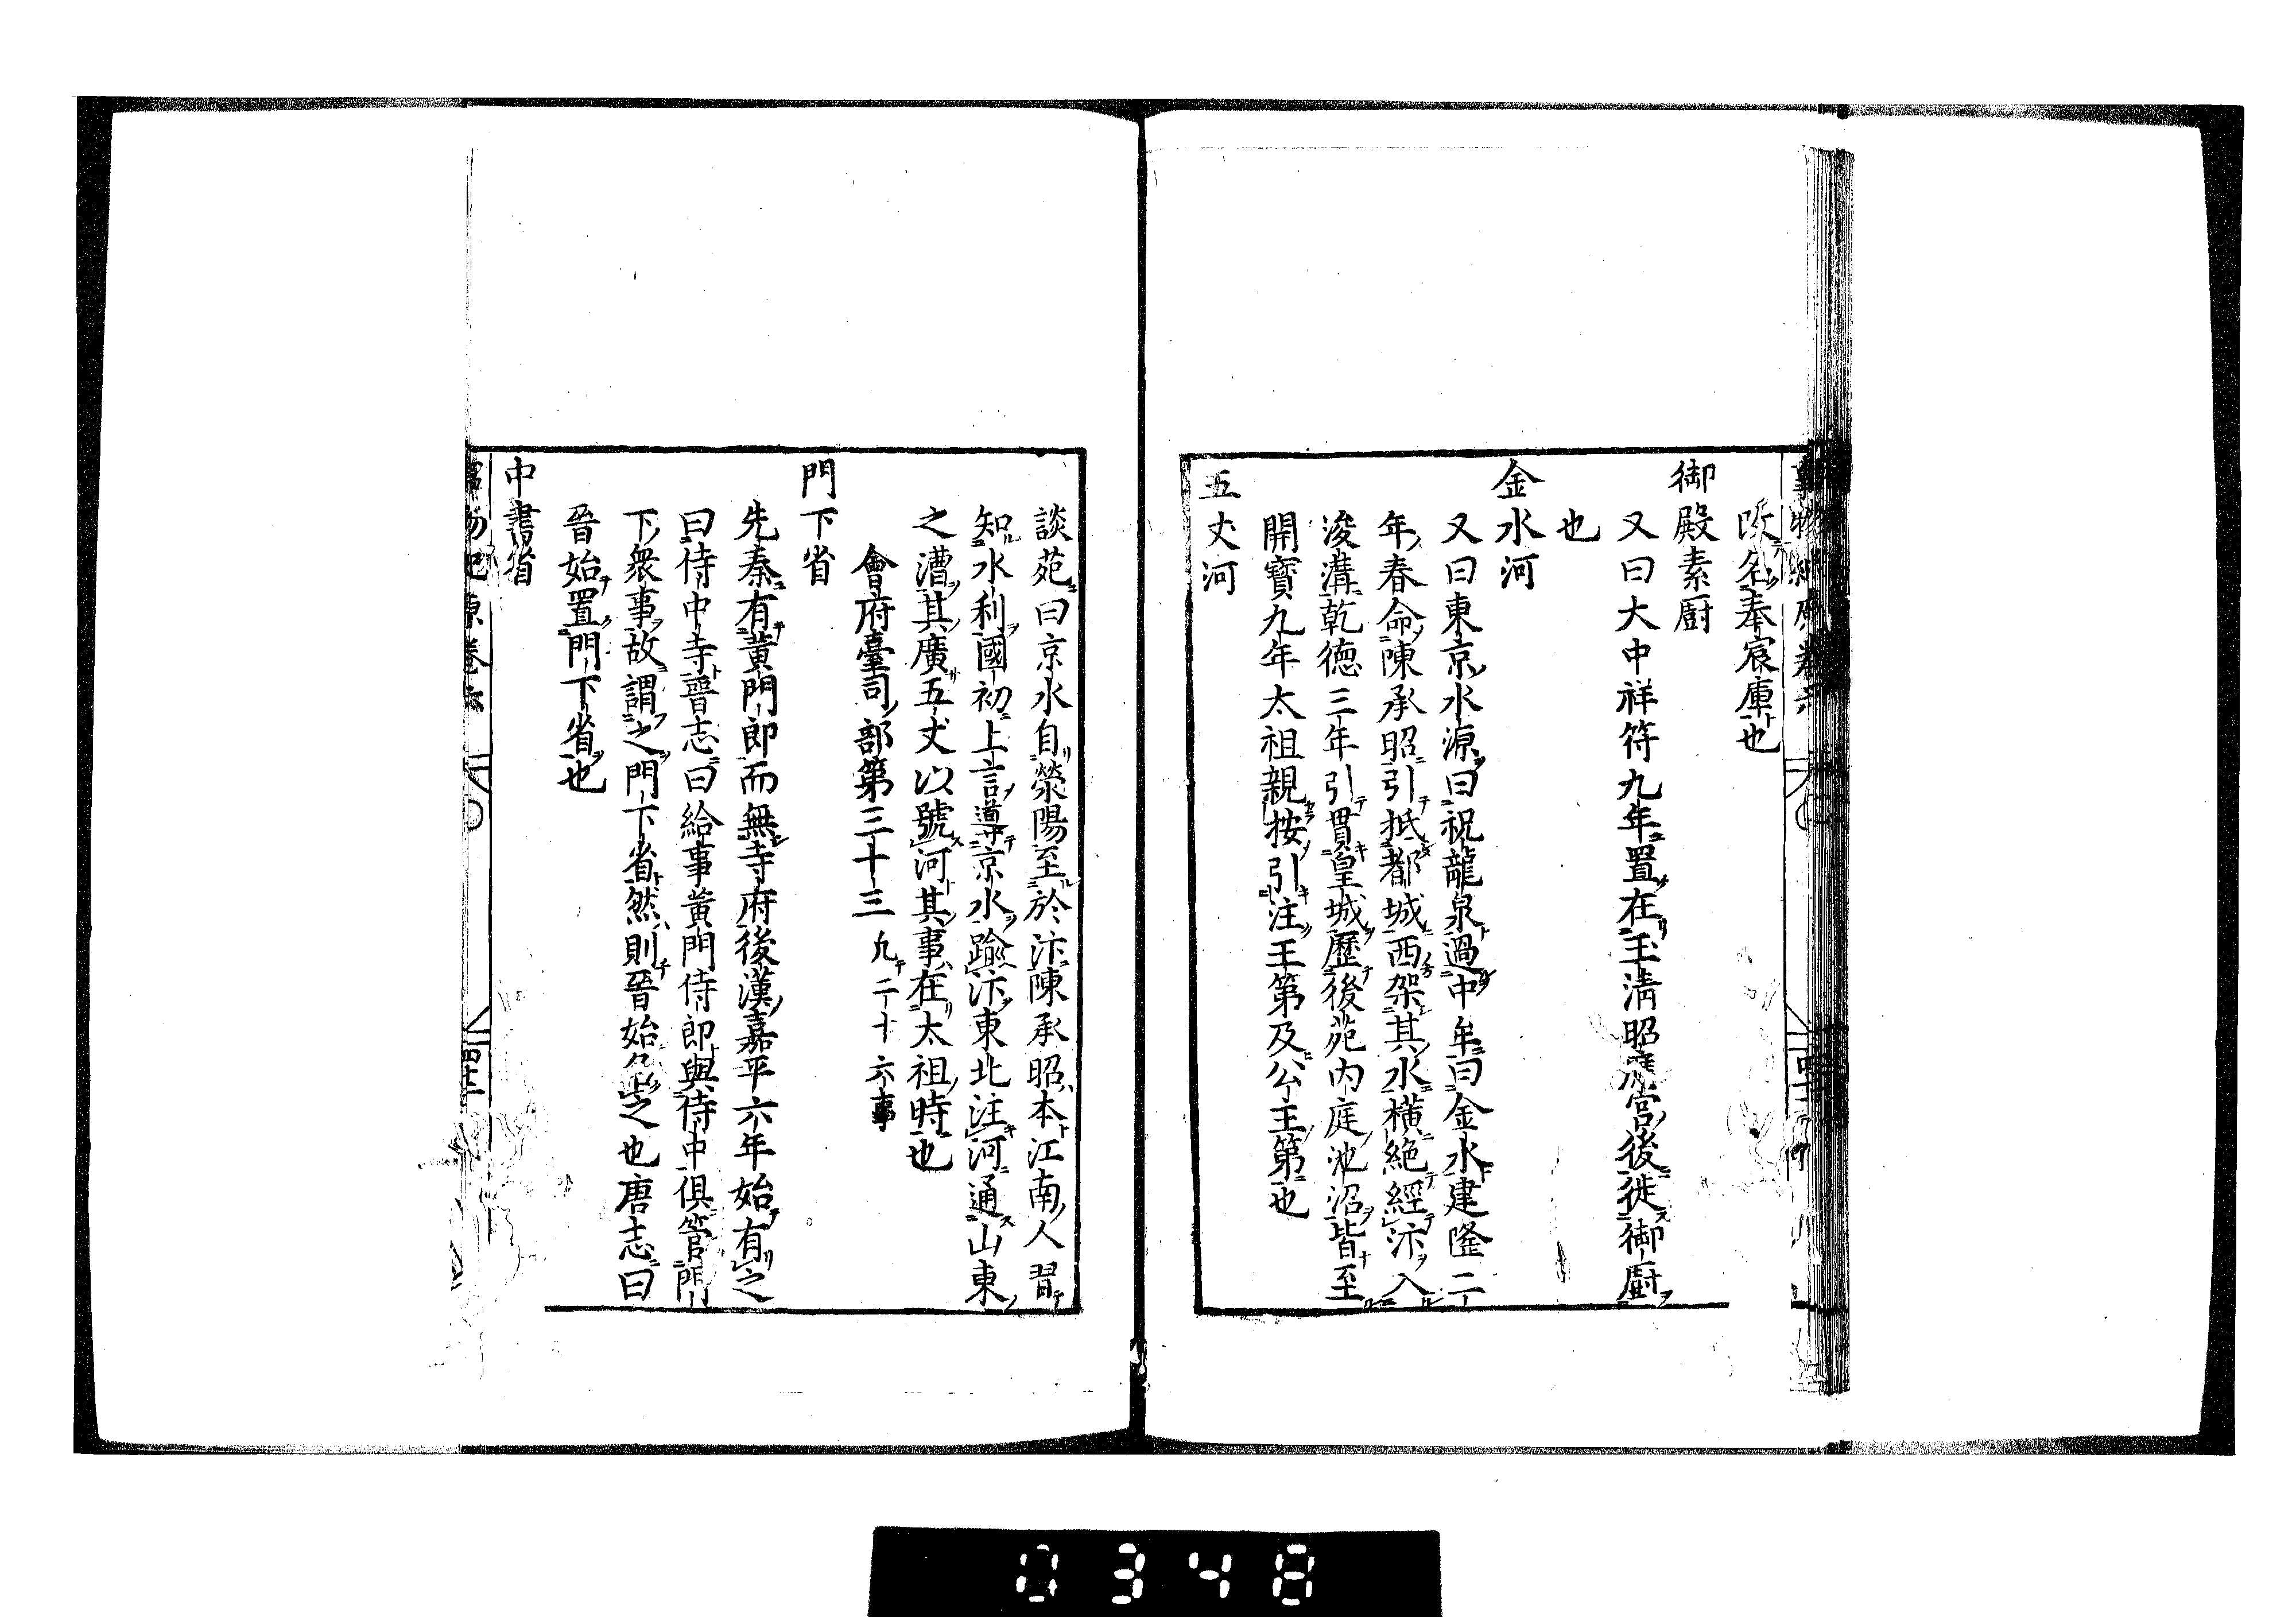 事物紀原卷六
改名奉宸庫也
御殿素厨
又曰大中祥符九年置在玉淸昭應宮後徙御厨
也
金水河
又曰東京水源曰祝龍泉過中牟曰金水建隆二
年春命陳承昭引抵都城西架其水橫絶經汴入
浚溝乾德三年引貫皇城歷後苑内庭池沼皆至
開寳九年太祖親按引注王第及公主第也
五丈河
談苑曰京水自滎陽至於汴陳承昭本江南人習
知水利國初上言導京水踰汴東北注河通山東
之漕其廣五丈以號河其事在太祖時也
會府臺司部第三十三 凡二十六事
門下省
先秦有黃門郎而無寺府後漢嘉平六年始有之
曰侍中寺晉志曰給事黃門侍郎與侍中俱管門
下衆事故謂之門下省然則晉始名之也唐志曰
晉始置門下省也
中書省
事物紀原卷六
0348